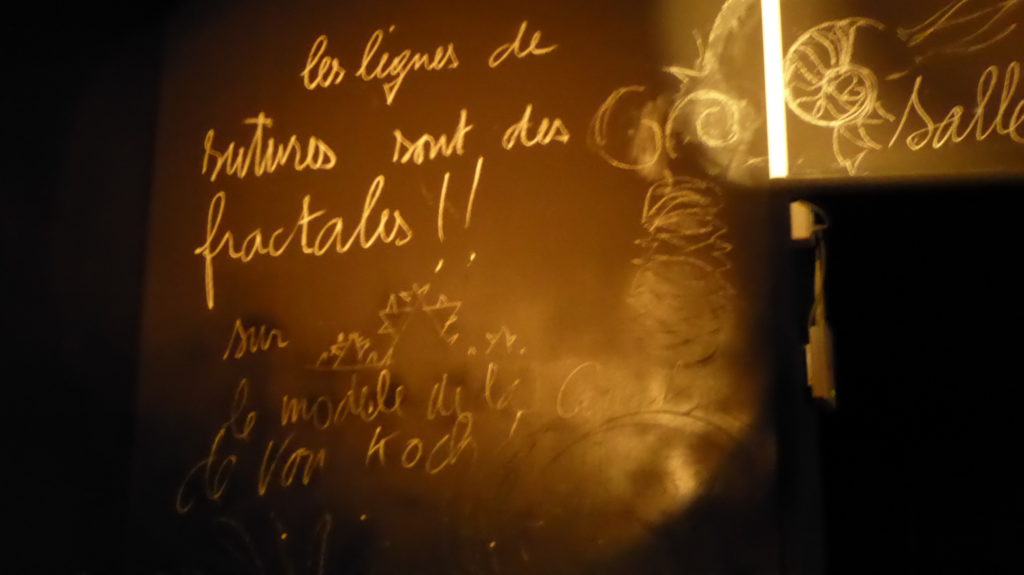 les lignes de
sutures sont des
fractales !!
sur
le modèle de la
de Von Koch
salle